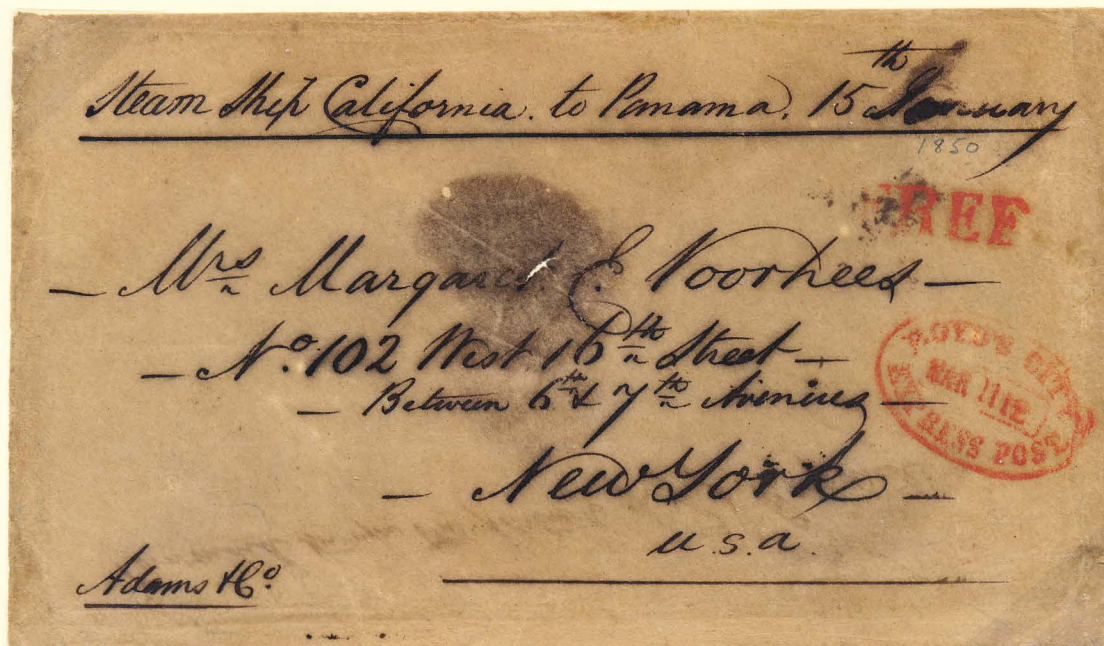 Steam Ship California. to Panama. 15th January
1850
FREE
— Mrs Margaret E. Voorhees —
— No. 102 West 16th Street —
— Between 6th & 7th Avenues —
— New York —
U.S.A.
Adams & Co.
BOYD'S CITY
MAR 11 12
EXPRESS POST